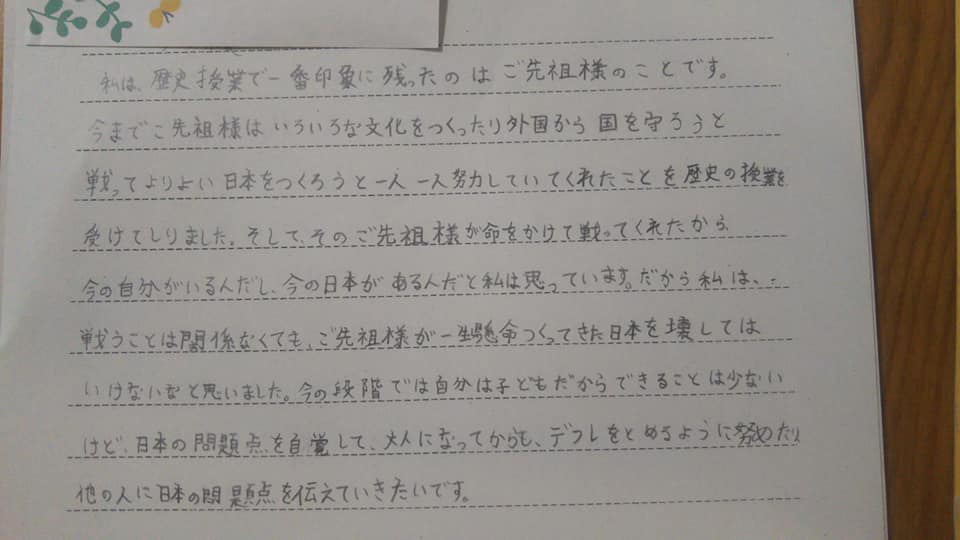 私は、歴史授業で一番印象に残ったのはご先祖様のことです。
今までご先祖様はいろいろな文化をつくったり外国から国を守ろうと
戦ってよりよい日本をつくろうと一人一人努力していてくれたことを歴史の授業を
受けてしりました。そして、そのご先祖様が命をかけて戦ってくれたから
今の自分がいるんだし、今の日本があるんだと私は思っています。だから私は、
戦うことは関係なくても、ご先祖様が一生懸命つくってきた日本を壊しては
いけないなと思いました。今の段階では自分は子どもだからできることは少ない
けど、日本の問題点を自覚して、大人になってからも、デフレをとめるように努めたり
他の人に日本の問題点を伝えていきたいです。